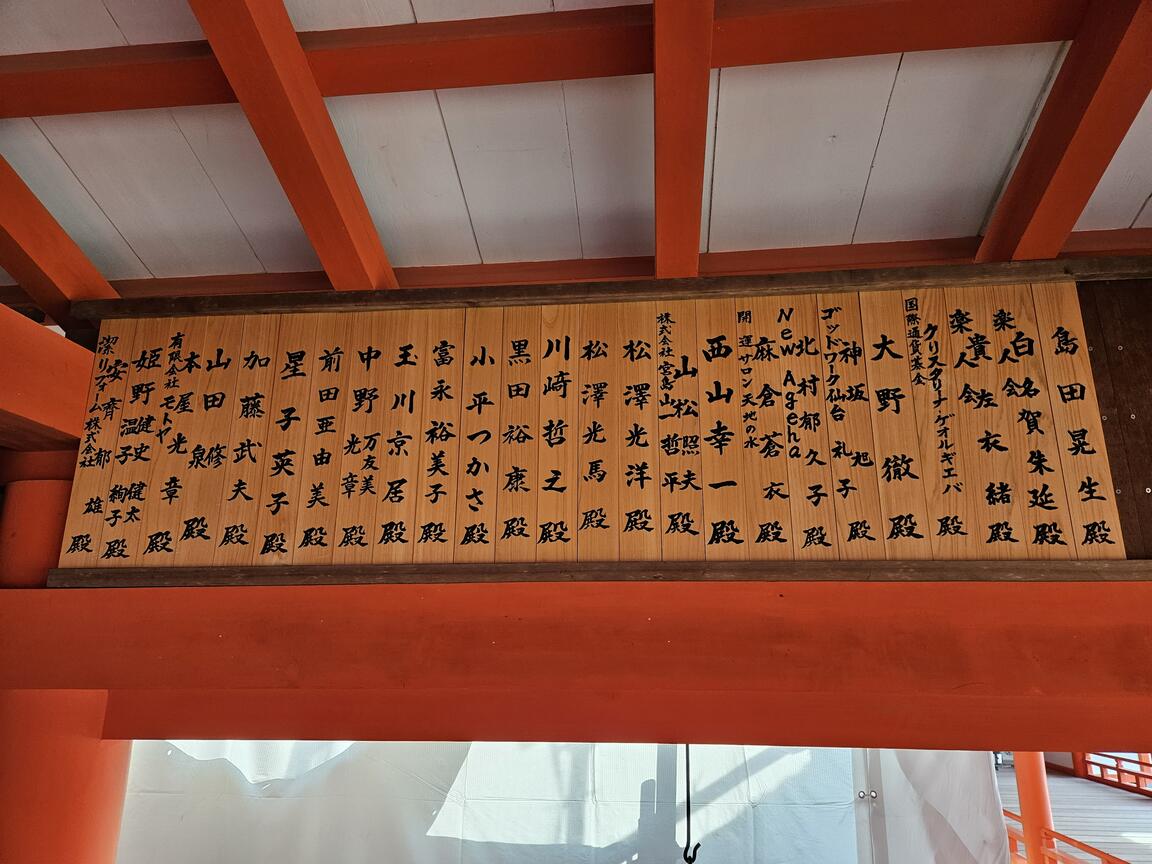 島田晃生殿
楽人会
白名賀朱延殿
楽人会
貴佐衣緒殿
国際通貨基金
クリスタリナゲオルギエバ殿
大野徹殿
ゴッドワーク仙台
神坂礼子
旭殿
New Ageha
北村郁久子殿
開運サロン天地の水
麻倉蒼衣殿
西山幸一殿
株式会社堂島山一
山松照夫
哲平殿
松澤光洋殿
松澤光馬殿
川崎哲之殿
黒田裕康殿
小平つかさ殿
富永裕美子殿
玉川京居殿
中野万友美
光章殿
前田亜由美殿
星子英子殿
加藤武夫殿
山田修殿
有限会社モトヤ
本屋光章
泉殿
姫野健史
健太殿
温子
絢子殿
潔リフォーム株式会社
安齊郁雄殿